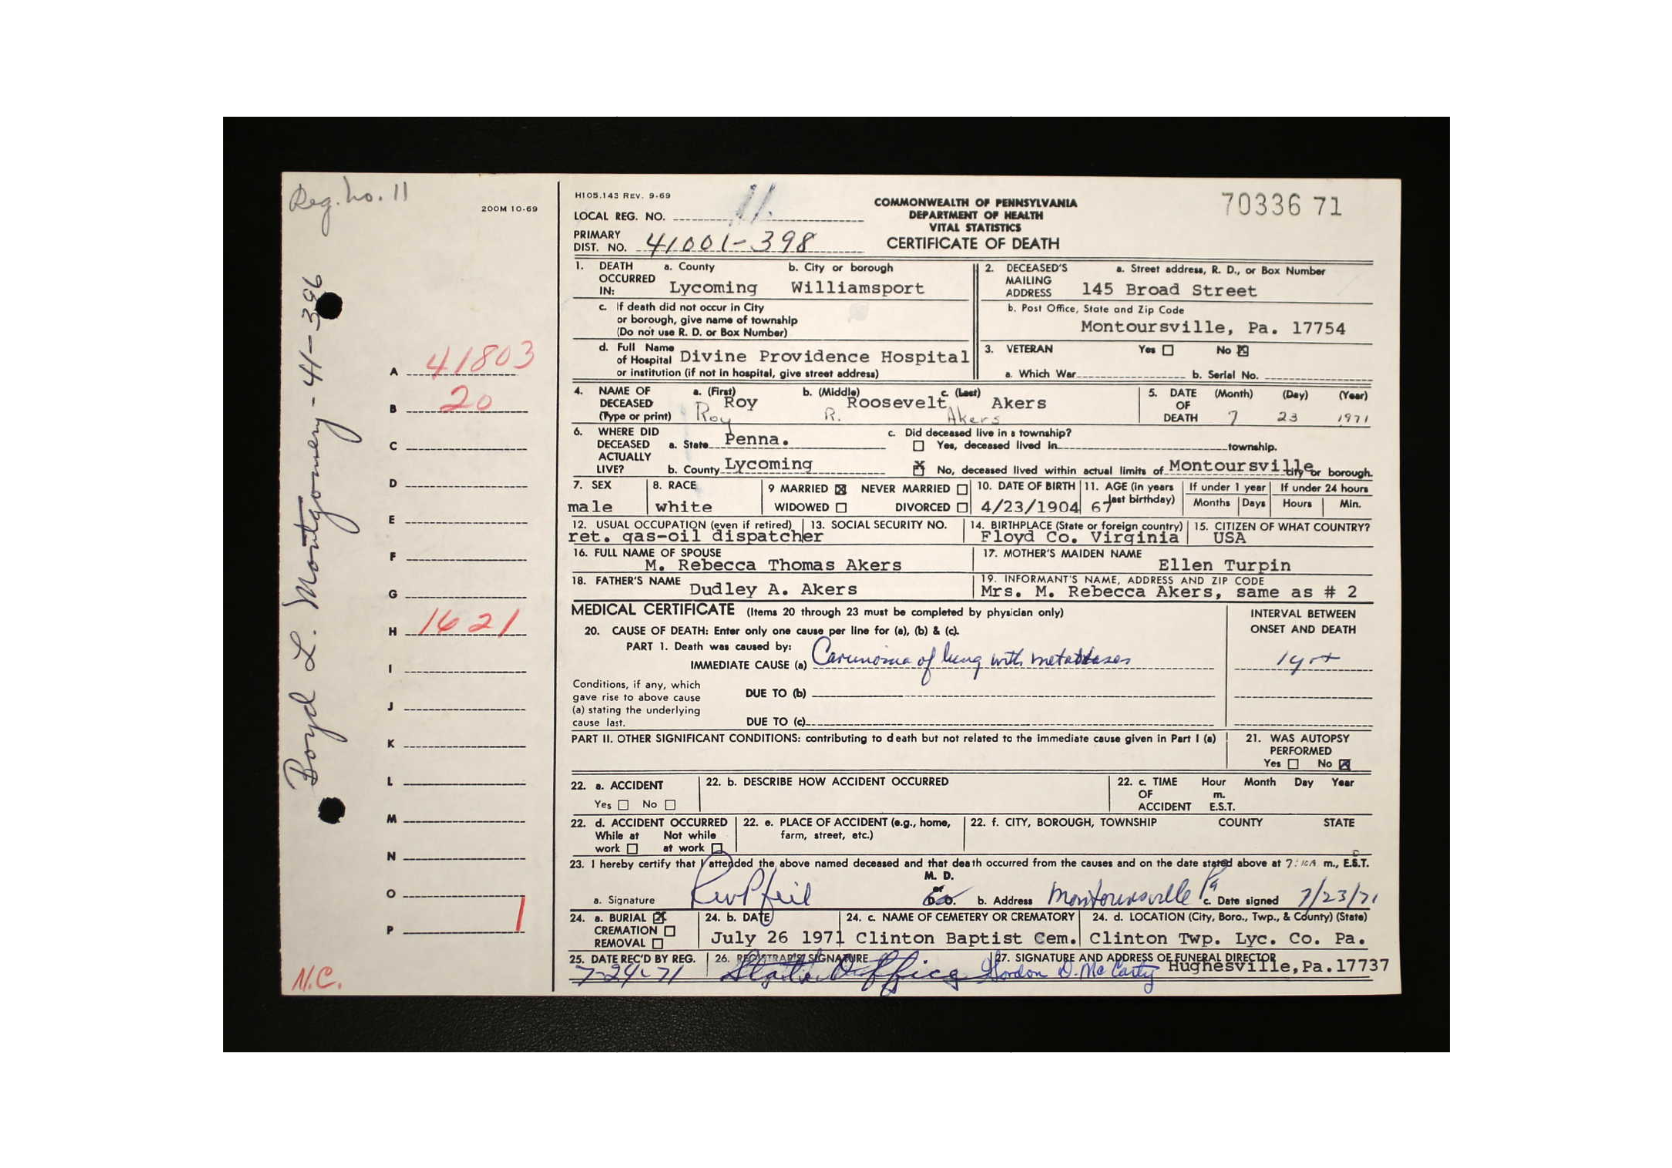 Reg. No. 11
200M 10-69
Boyd L. Montgomery - 41-396
A 41803
B 20
C
D
E
F
G
H 1621
I
J
K
L
M
N
O
P
1
N.C.
H105.143 REV. 9-69
LOCAL REG. NO. 11
PRIMARY
DIST. NO. 41001-398
COMMONWEALTH OF PENNSYLVANIA
DEPARTMENT OF HEALTH
VITAL STATISTICS
CERTIFICATE OF DEATH
70336 71
1. DEATH OCCURRED IN: a. County Lycoming b. City or borough Williamsport
c. If death did not occur in City
or borough, give name of township
(Do not use R. D. or Box Number)
d. Full Name of Hospital Divine Providence Hospital
or institution (if not in hospital, give street address)
2. DECEASED'S MAILING ADDRESS a. Street address, R. D., or Box Number
145 Broad Street
b. Post Office, State and Zip Code
Montoursville, Pa. 17754
3. VETERAN Yes No
a. Which War b. Serial No.
4. NAME OF DECEASED (Type or print) a. (First) b. (Middle) c. (Last)
Roy Roosevelt Akers
Roy R. Akers
5. DATE OF DEATH (Month) (Day) (Year)
7 23 1971
6. WHERE DID DECEASED ACTUALLY LIVE? a. State Penna.
b. County Lycoming
c. Did deceased live in a township?
Yes, deceased lived in township.
No, deceased lived within actual limits of Montoursville city or borough.
7. SEX male
8. RACE white
9 MARRIED NEVER MARRIED
WIDOWED DIVORCED
10. DATE OF BIRTH 4/23/1904
11. AGE (in years last birthday) 67
If under 1 year Months Days
If under 24 hours Hours Min.
12. USUAL OCCUPATION (even if retired)
ret. gas-oil dispatcher
13. SOCIAL SECURITY NO.
14. BIRTHPLACE (State or foreign country)
Floyd Co. Virginia
15. CITIZEN OF WHAT COUNTRY?
USA
16. FULL NAME OF SPOUSE
M. Rebecca Thomas Akers
17. MOTHER'S MAIDEN NAME
Ellen Turpin
18. FATHER'S NAME Dudley A. Akers
19. INFORMANT'S NAME, ADDRESS AND ZIP CODE
Mrs. M. Rebecca Akers, same as # 2
MEDICAL CERTIFICATE (Items 20 through 23 must be completed by physician only)
INTERVAL BETWEEN
ONSET AND DEATH
20. CAUSE OF DEATH: Enter only one cause per line for (a), (b) & (c).
PART 1. Death was caused by:
IMMEDIATE CAUSE (a) Carcinoma of lung with metastases 1 yr +
Conditions, if any, which
gave rise to above cause
(a) stating the underlying
cause last.
DUE TO (b)
DUE TO (c)
PART II. OTHER SIGNIFICANT CONDITIONS: contributing to death but not related to the immediate cause given in Part I (a)
21. WAS AUTOPSY
PERFORMED
Yes No
22. a. ACCIDENT
Yes No
22. b. DESCRIBE HOW ACCIDENT OCCURRED
22. c. TIME OF ACCIDENT Hour m. E.S.T. Month Day Year
22. d. ACCIDENT OCCURRED
While at work Not while at work
22. e. PLACE OF ACCIDENT (e.g., home,
farm, street, etc.)
22. f. CITY, BOROUGH, TOWNSHIP COUNTY STATE
23. I hereby certify that I attended the above named deceased and that death occurred from the causes and on the date stated above at m., E.S.T.
a. Signature M. D. or D.O. b. Address Montoursville Pa c. Date signed 7/23/71
24. a. BURIAL
CREMATION
REMOVAL
24. b. DATE
July 26 1971
24. c. NAME OF CEMETERY OR CREMATORY
Clinton Baptist Cem.
24. d. LOCATION (City, Boro., Twp., & County) (State)
Clinton Twp. Lyc. Co. Pa.
25. DATE REC'D BY REG.
7-24-71
26. REGISTRAR'S SIGNATURE
State Office
27. SIGNATURE AND ADDRESS OF FUNERAL DIRECTOR
Gordon D. McCarty Hughesville, Pa. 17737